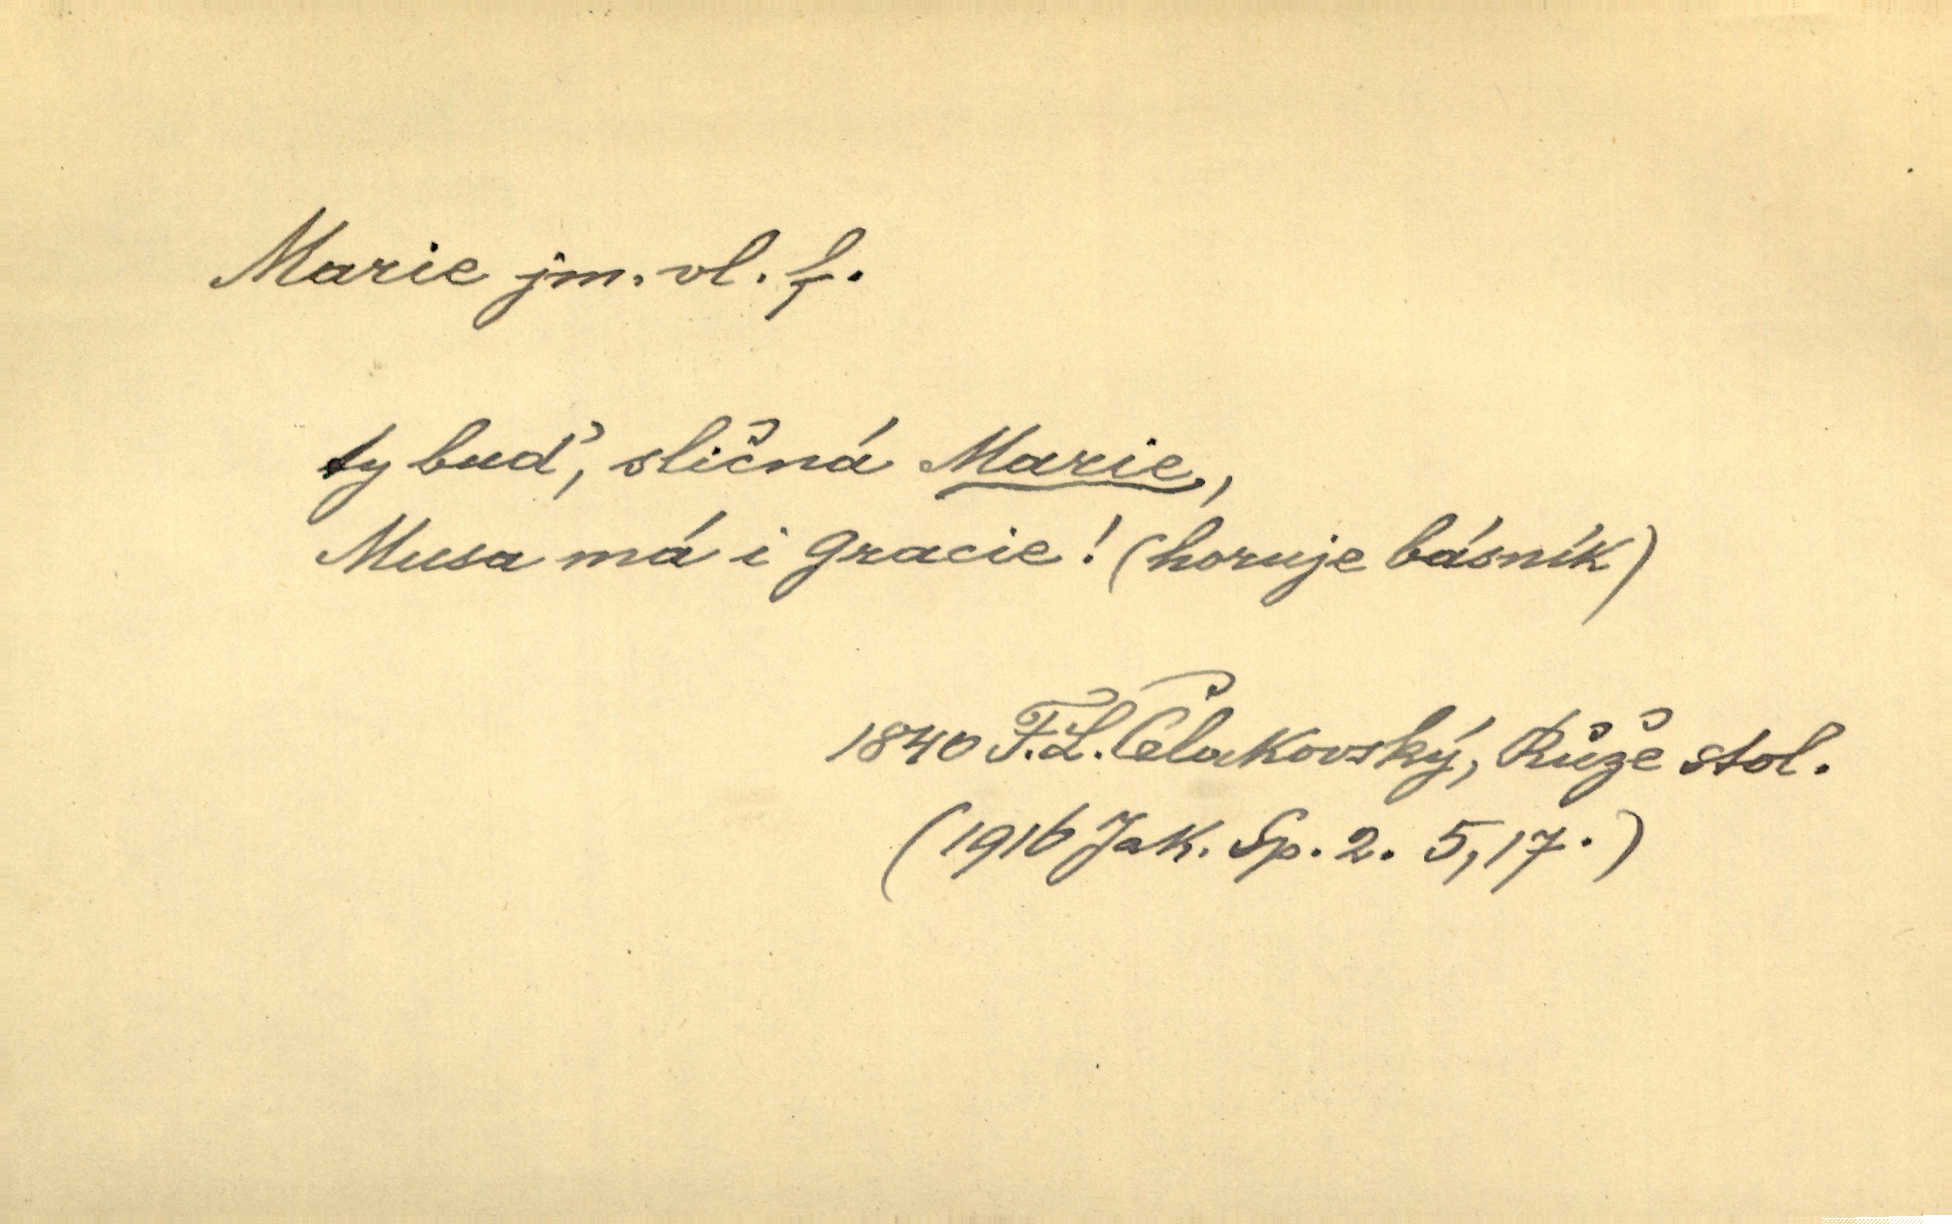 Marie jm. vl. f.
ty buď, sličná Marie,
Musa má i Gracie! (horuje básník)
1840 F. L. Čelakovský, Růže stol.
(1916 Jak. Sp. 2. 5, 17.)